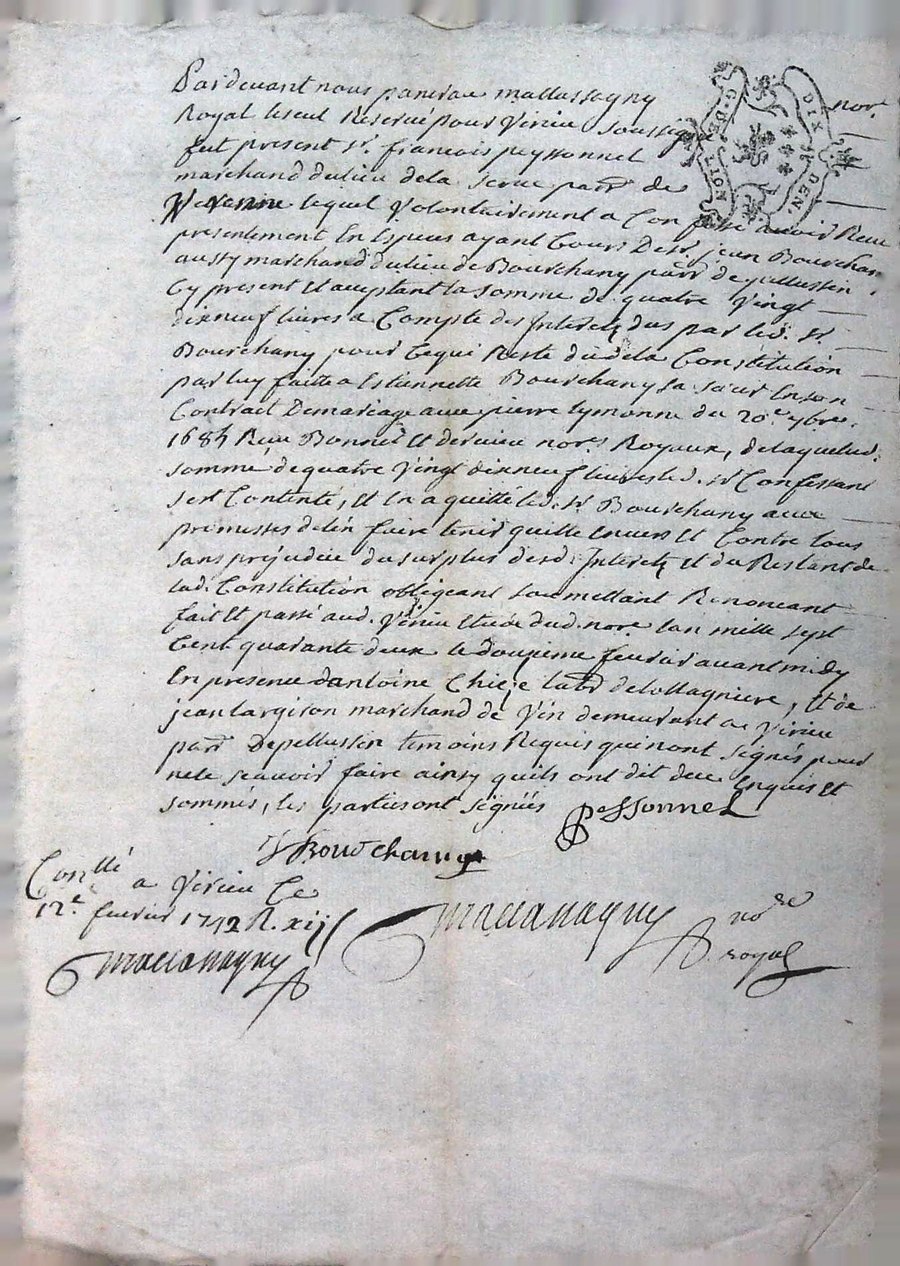 Pardevant nous pancrace mallassagny nore.
Royal le seul Reservé pour Virieu soussigné
fut present Sr. francois peyssonnel
marchand du lieu de la Serve parr. de
lequel Volontairement a Confessé avoir Receu
presentement En Especes ayant Cours De Sr. jean Bourchany
aussy marchand du lieu de Bourchany parr. de pellussin
Cy present Et aceptant la somme de quatre Vingt
dixneuf livres a Compte des Interets dus par led. Sr.
Bourchany pour Ce qui Reste dû de la Constitution
par luy faitte a Estiennette Bourchany sa sœur En son
Contrait De mariage avec pierre Eymonne du 20e. 9bre.
Receu Bonnet Et dervieu nores. Royaux, de laquelled.
somme de quatre Vingt dixneuf livres led. Sr Confessant
s'est Contenté, Et En a quitté led. Sr Bourchany avec
promesses de l'en faire tenir quitte Envers Et Contre tous
sans prejudice du surplus desd. Interets Et du Restant de
lad. Constitution obligeant soumettant Renoncant
fait Et passé aud. Virieu Etude dud. nore. l'an mille sept
Cent quarante deux le douzieme fevrier avant midy
En presence d'antoine Chize labr de Et de
jean largison marchand de Vin demeurant a Virieu
parr. De pellussin temoins Requis qui n'ont signés pour
ne le scavoir faire ainsy quils ont dit de ce Enquis Et
sommés, les parties ont signéés Peyssonnel
J Bourchany
Conllé
a Virieu Ce
12e. fevrier 1742 R. xij s
mallassagny
mallassagny nore
royal
G. DE LION
DIX DEN.